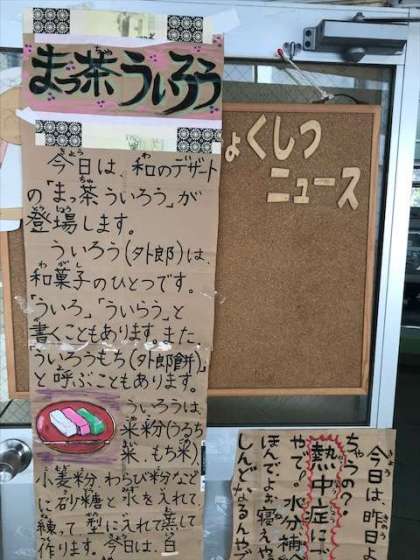 まっ茶ういろう
今日は、和のデザート
の「まっ茶ういろう」が
登場します。
ういろう(外郎)は、
和菓子のひとつです。
「ういろ」、「ういらう」と
書くこともあります。また、
ういろうもち(外郎餅)」
と呼ぶこともあります。
ういろうは、
米粉(うるち
米、もち米)、
小麦粉、わらび粉など
に砂糖と水を入れて、
練って型に入れて蒸して
作ります。今日は、白
ょくしつ
ニュース
今日は、昨日
ちゃうの?
熱中症に
やで!水分補
ほんでよぉ寝えや
しんどなるんやで